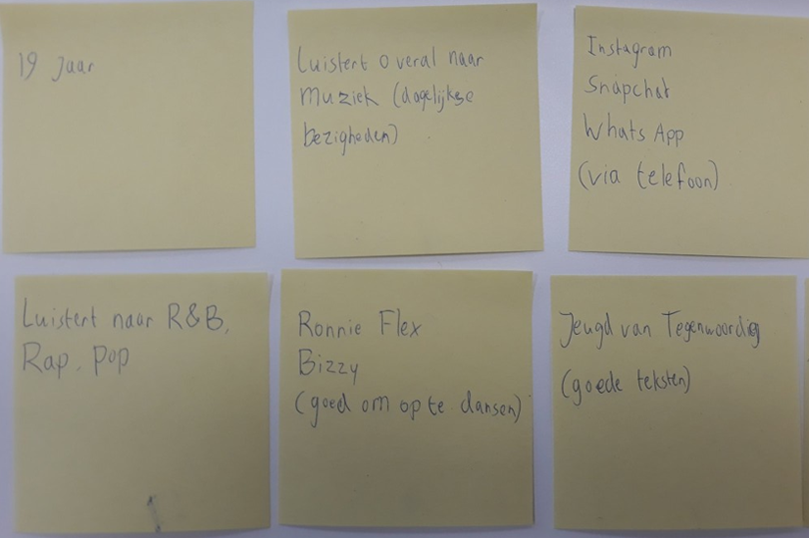 19 Jaar
Luistert overal naar
muziek (dagelijkse
bezigheden)
Instagram
Snapchat
WhatsApp
(via telefoon)
Luistert naar R&B,
Rap, Pop
Ronnie Flex
Bizzy
(goed om op te dansen)
Jeugd van Tegenwoordig
(goede teksten)